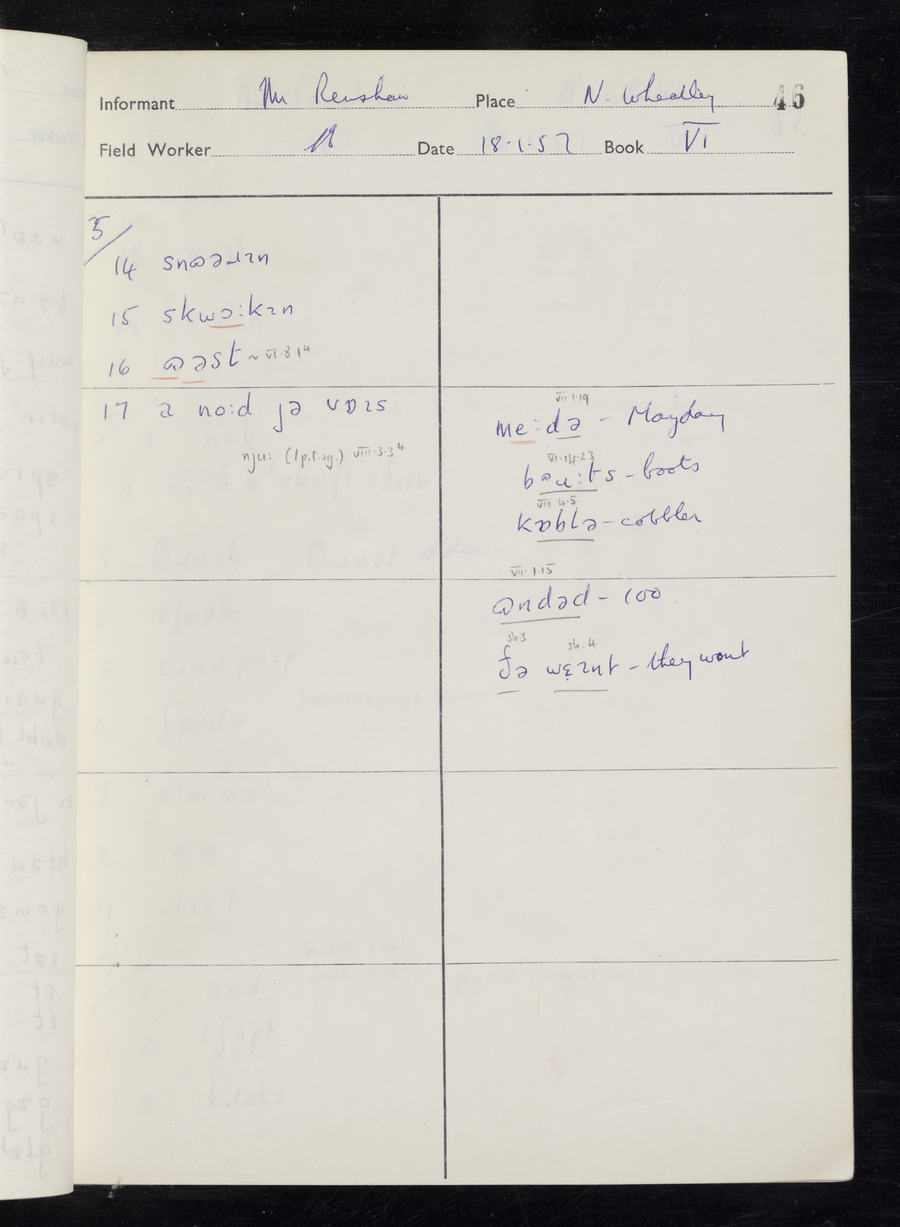 Informant Mr Renshaw Place N. Wheatley 46
Field Worker Date 18.1.57 Book VI
5/
14 snɷəɹɪn
15 skwɔ:kɪn
16 ɷəst ~ VI.8.14
17 a no:d jə vɒɪs
nju: (1p.t.sg.) VIII.3.34
VII 1.19
me:də - Mayday
VI.14.23
bəu:ts - boots
VIII.4.5
kɒblə - cobbler
VII.1.15
ɷndəd - 100
sh.3 sh.4
ðə wɛɪnt - they wont